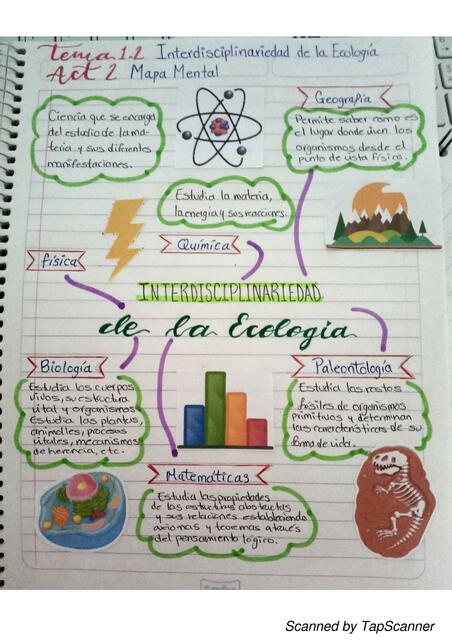 Tema 1.2 Interdisciplinariedad de la Ecología
Act 2 Mapa Mental
Ciencia que se encarga
del estudio de la ma-
teria y sus diferentes
manifestaciones.
Geografía
Permite saber como es
el lugar donde viven los
organismos desde el
punto de vista físico.
Estudia la materia,
la energía y sus reacciones.
Química
física
INTERDISCIPLINARIEDAD
de la Ecología
Biología
Estudia los cuerpos
vivos, su estructura
vital y organismos
Estudia las plantas,
animales, procesos
vitales, mecanismos
de herencia, etc.
Paleontología
Estudia los restos
fósiles de organismos
primitivos y determinan
las características de su
forma de vida.
Matemáticas
Estudia las propiedades
de las estructuras abstractas
y sus relaciones estableciendo
axiomas y teoremas a través
del pensamiento lógico.
Scanned by TapScanner